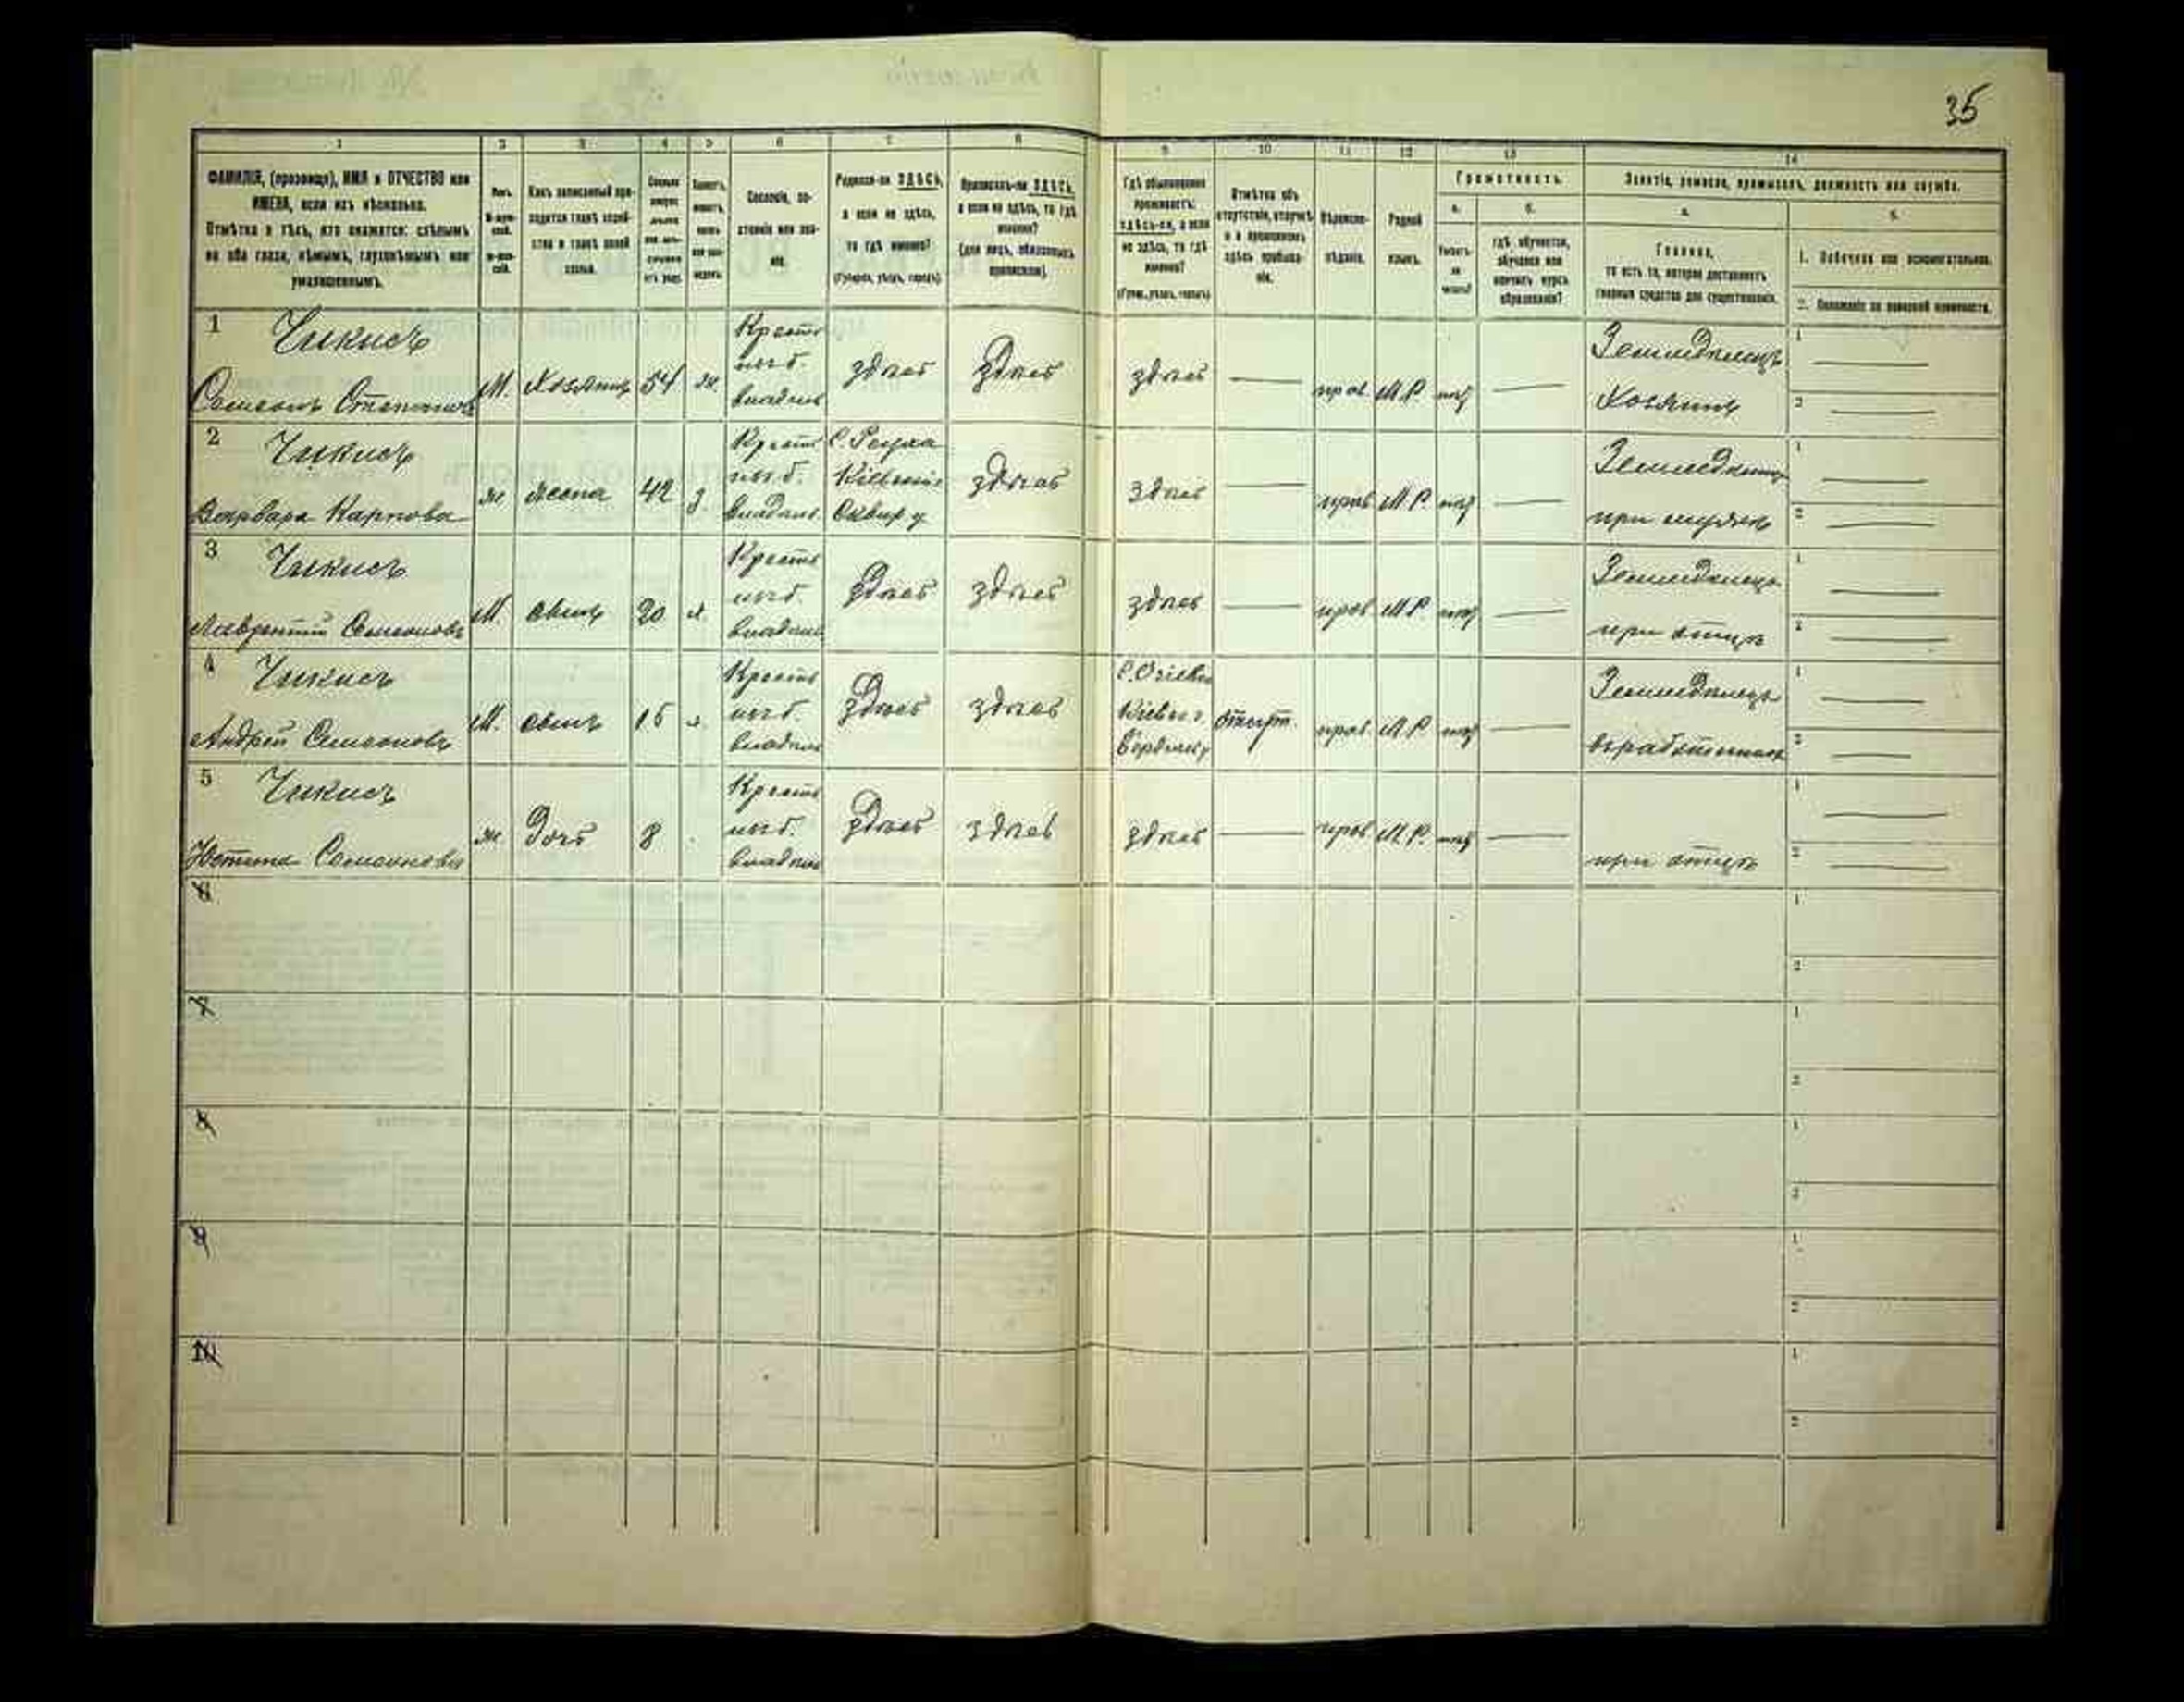 35
1 2 3 4 5 6 7 8 9 10 11 12 13 14
ФАМИЛІЯ, (прозвище), ИМЯ и ОТЧЕСТВО или
ИМЕНА, если ихъ нѣсколько.
Отмѣтка о тѣхъ, кто окажется: слѣпымъ
на оба глаза, нѣмымъ, глухонѣмымъ или
умалишеннымъ.
Полъ.
Какъ записанный при-
ходится главѣ хозяй-
ства и главѣ своей
семьи.
Сословіе, со-
стояніе или зва-
ніе.
Родился-ли ЗДѢСЬ,
а если не здѣсь,
то гдѣ именно?
(Губернія, уѣздъ, городъ).
Приписанъ-ли ЗДѢСЬ,
а если не здѣсь, то гдѣ
именно?
(для лицъ, обязанныхъ
припискою).
Гдѣ обыкновенно
проживаетъ:
здѣсь-ли, а если
не здѣсь, то гдѣ
именно?
(Губер., уѣздъ, городъ).
Отмѣтка объ
отсутствіи, отлучкѣ
и о временномъ
здѣсь пребыва-
ніи.
Вѣроиспо-
вѣданіе.
Родной
языкъ.
Грамотность.
а.
Умѣетъ-
ли
читать?
б.
гдѣ обучается,
обучался или
кончилъ курсъ
образованія?
Занятіе, ремесло, промыселъ, должность или служба.
а.
Главное,
то есть то, которое доставляетъ
главныя средства для существованія.
б.
1. Побочное или вспомогательное.
2. Положеніе по воинской повинности.
1 Чикисъ
Семеонъ Степановъ
М. Хозяинъ 54 ж.
Крестъ
изъ б.
владѣль
здѣсь здѣсь здѣсь
прав. М.Р. нѣт
Земледѣлецъ
Хозяинъ
1
2
2 Чикисъ
Варвара Карпова
ж жена 42 з.
Крест
изъ б.
владѣль
Кіевской
Сквир у
здѣсь здѣсь
прав М.Р. нѣт
при мужѣ
1
2
3 Чикисъ
Лаврентій Семеоновъ
М. сынъ 20 х.
Крестъ
изъ б.
владѣль
здѣсь здѣсь здѣсь
прав М.Р. нѣт
Земледѣлецъ
при отцѣ
1
2
4 Чикисъ
Андрей Семеоновъ
М. сынъ 16 х.
Крестъ
изъ б.
владѣль
здѣсь здѣсь
прав. М.Р. нѣт
Земледѣлецъ
1
2
5 Чикисъ
Юстина Семеонова
ж Дочь 8
Крестъ
изъ б.
владѣль
здѣсь здѣсь здѣсь
прав М.Р. нѣт
при отцѣ
1
2
6
1
2
7
1
2
8
1
2
9
1
2
10
1
2